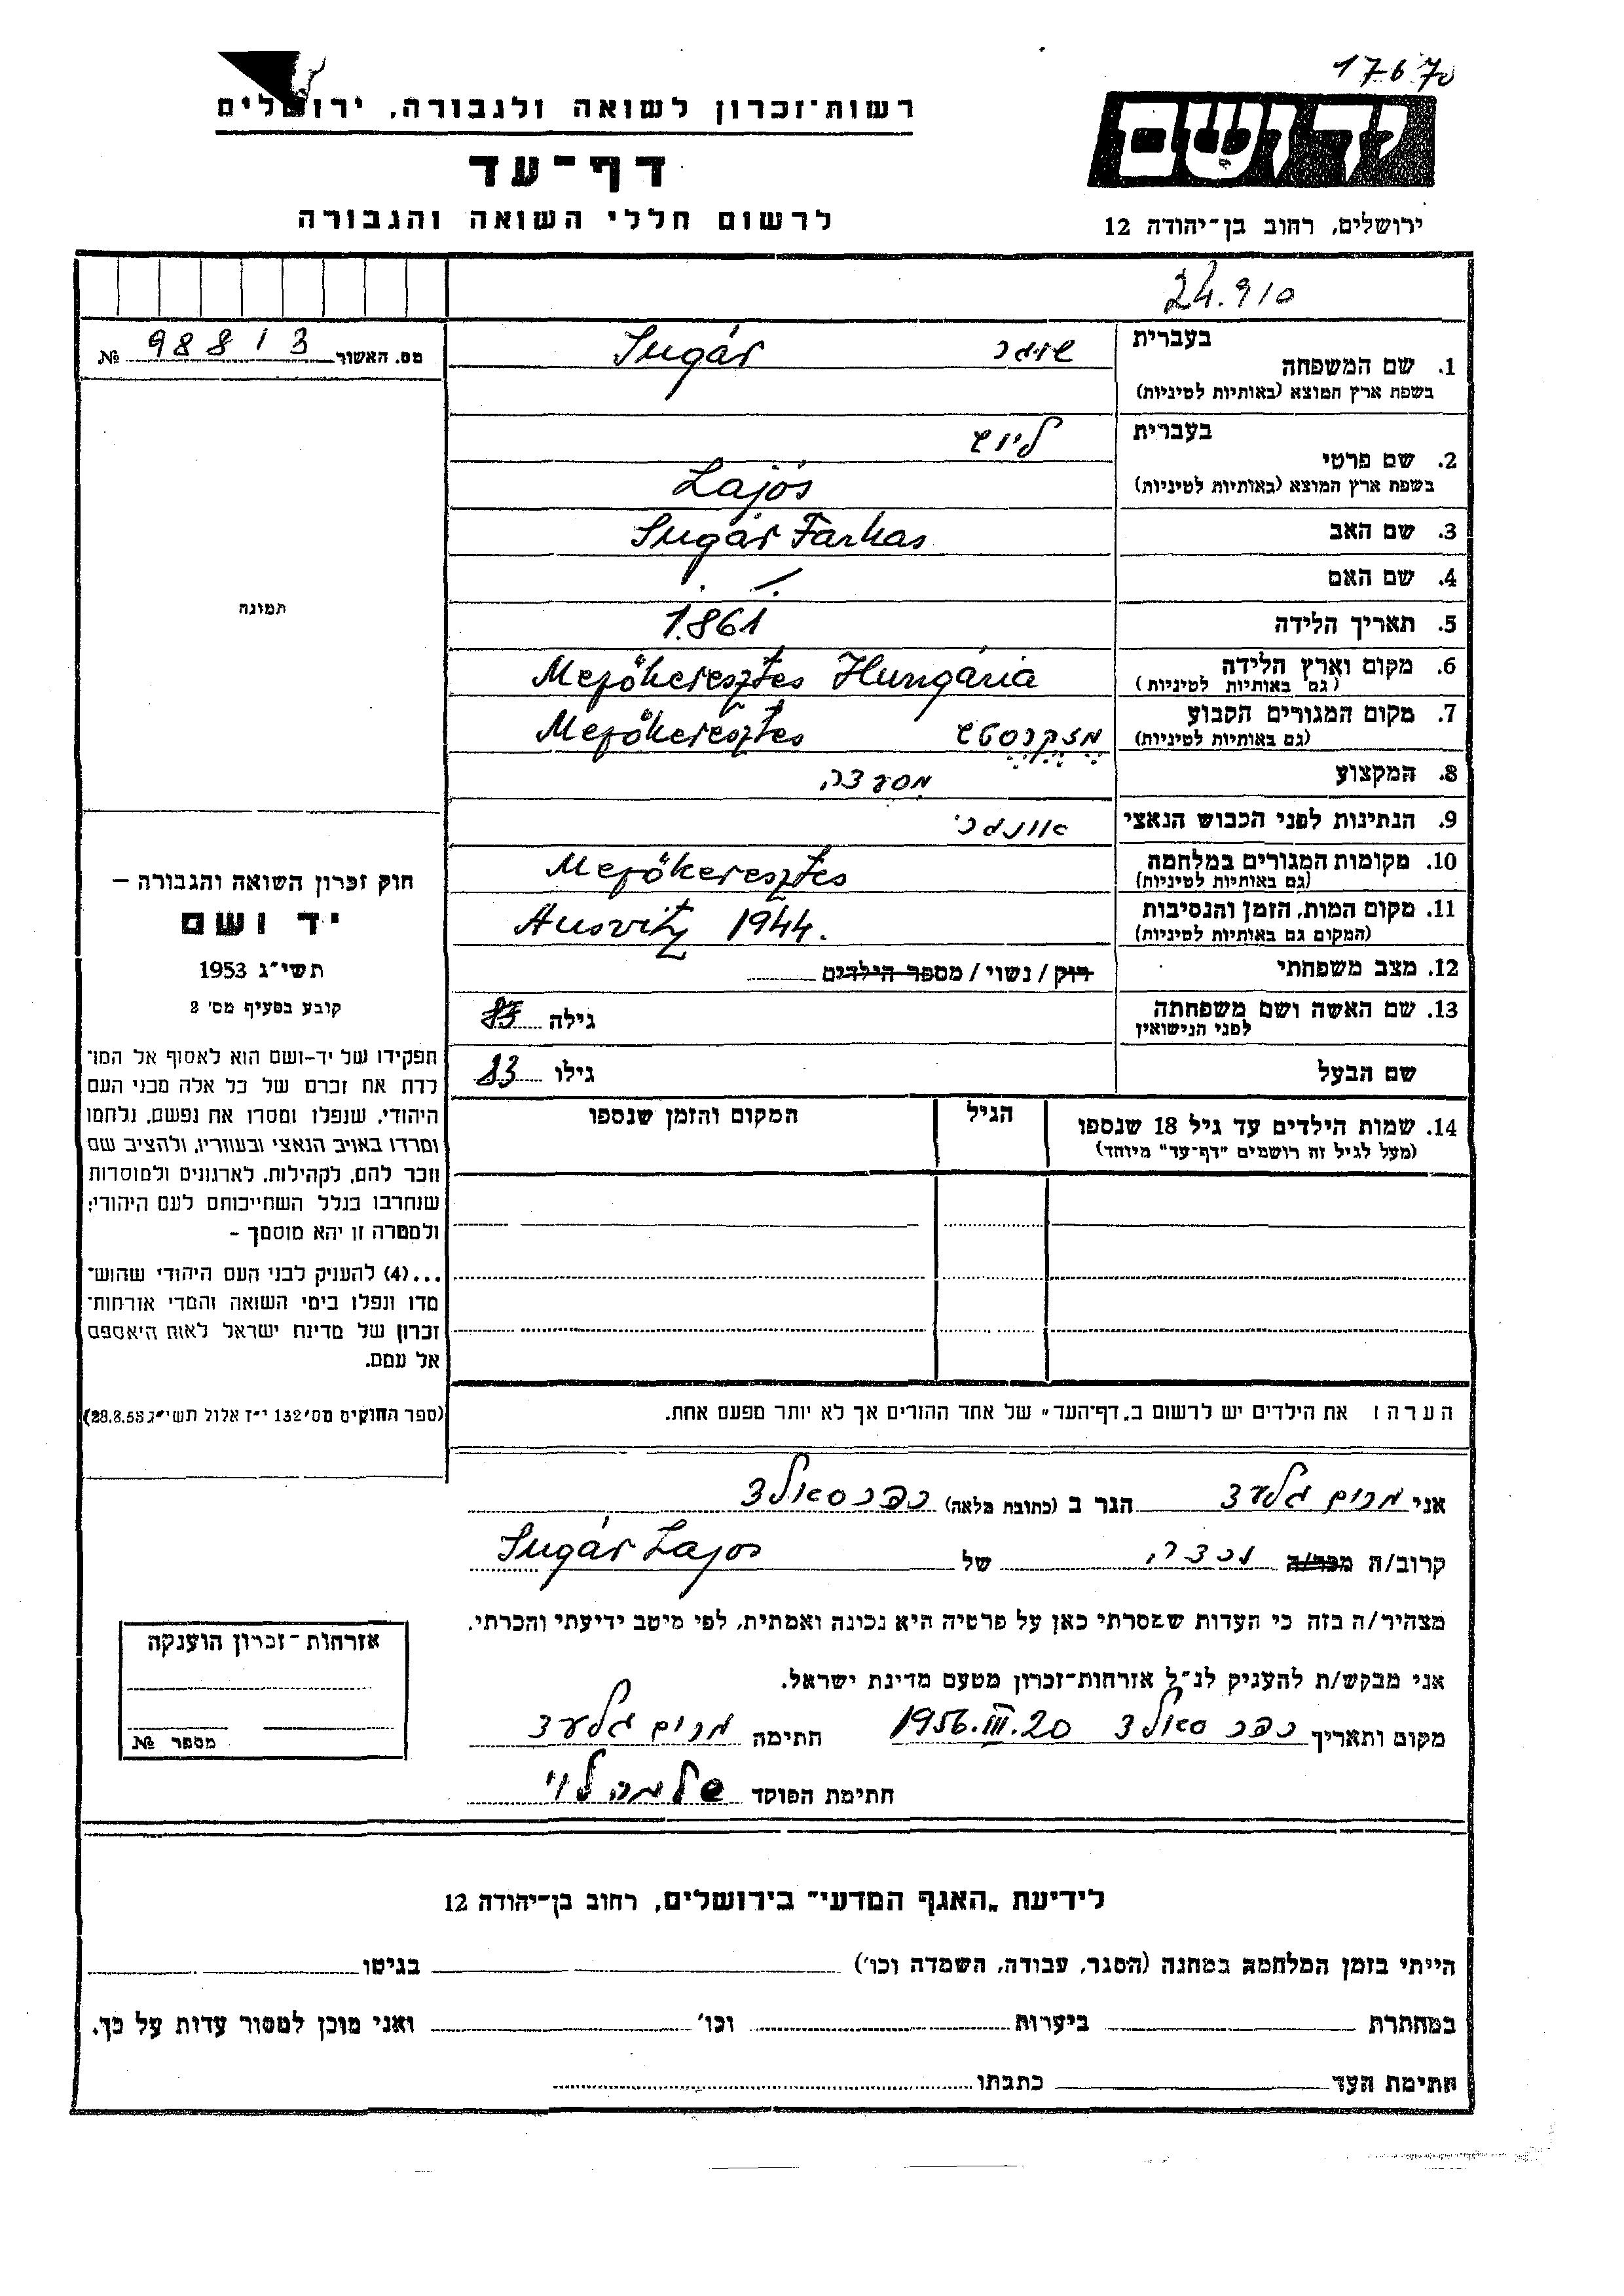 17670
רשות-זכרון לשואה ולגבורה, ירושלים
דף-עד
לרשום חללי השואה והגבורה
יד ושם
ירושלים, רחוב בן-יהודה 12
24.910
מס. האשור 98813 №
1. שם המשפחה
בעברית שוגר Sugár
בשפת ארץ המוצא (באותיות לטיניות)
2. שם פרטי
בעברית ליוש
בשפת ארץ המוצא (באותיות לטיניות) Lajós
3. שם האב Sugár Farkas
4. שם האם
5. תאריך הלידה 1861
6. מקום וארץ הלידה Mezőkeresztes Hungária
(גם באותיות לטיניות)
7. מקום המגורים הקבוע מזקרסטש Mezőkeresztes
(גם באותיות לטיניות)
8. המקצוע מסעדה
9. הנתינות לפני הכבוש הנאצי אונגרי
10. מקומות המגורים במלחמה Mezőkeresztes
(גם באותיות לטיניות)
11. מקום המות, הזמן והנסיבות Ausvitz 1944.
(המקום גם באותיות לטיניות)
12. מצב משפחתי רוק / נשוי / מספר הילדים
13. שם האשה ושם משפחתה גילה
לפני הנישואין
שם הבעל גילו 83
14. שמות הילדים עד גיל 18 שנספו הגיל המקום והזמן שנספו
(מעל לגיל זה רושמים "דף-עד" מיוחד)
תמונה
חוק זכרון השואה והגבורה –
יד ושם
תשי"ג 1953
קובע בסעיף מס' 2
תפקידו של יד-ושם הוא לאסוף אל המו-
לדת את זכרם של כל אלה מבני העם
היהודי, שנפלו ומסרו את נפשם, נלחמו
ומרדו באויב הנאצי ובעוזריו, ולהציב שם
וזכר להם, לקהילות, לארגונים ולמוסדות
שנחרבו בגלל השתייכותם לעם היהודי;
ולמטרה זו יהא מוסמך -
...(4) להעניק לבני העם היהודי שהוש-
מדו ונפלו בימי השואה והמרי אזרחות-
זכרון של מדינת ישראל לאות היאספם
אל עמם.
(ספר החוקים מס' 132 י"ז אלול תשי"ג 28.8.53)
הערה: את הילדים יש לרשום ב"דף-העד" של אחד ההורים אך לא יותר מפעם אחת.
אני מרים גלעד הגר ב (כתובת מלאה) כפר סאולד
קרוב/ה מכר/ה נכדה של Sugár Lajos
מצהיר/ה בזה כי העדות שמסרתי כאן על פרטיה היא נכונה ואמתית, לפי מיטב ידיעתי והכרתי.
אני מבקש/ת להעניק לנ"ל אזרחות-זכרון מטעם מדינת ישראל.
מקום ותאריך כפר סאולד 1956.III.20 חתימה מרים גלעד
חתימת הפוקד שלמה לוי
אזרחות-זכרון הוענקה
מספר №
לידיעת "האגף המדעי" בירושלים, רחוב בן-יהודה 12
הייתי בזמן המלחמה במחנה (הסגר, עבודה, השמדה וכו') בגיטו
במחתרת ביערות וכו' ואני מוכן למסור עדות על כך.
חתימת העד כתבתו